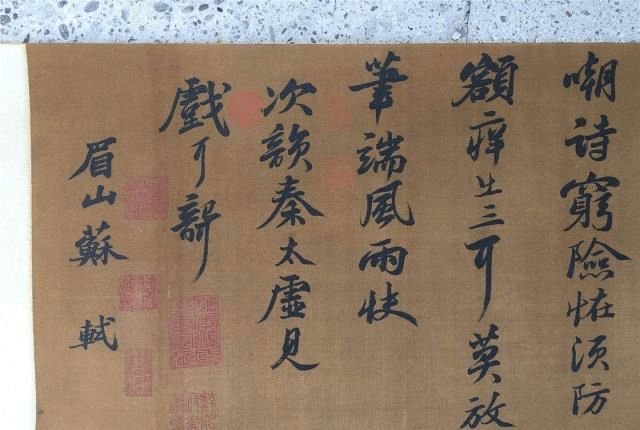 嘲詩窮險恠湏防
額痒生三耳莫放
筆端風雨快
次韻秦太虛見
戲耳聾
眉山蘇軾